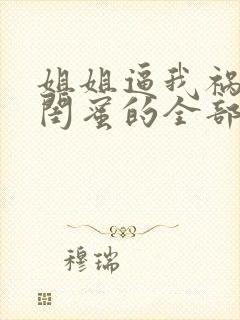 姐姐逼我祸
闺蜜的全部
穆瑞